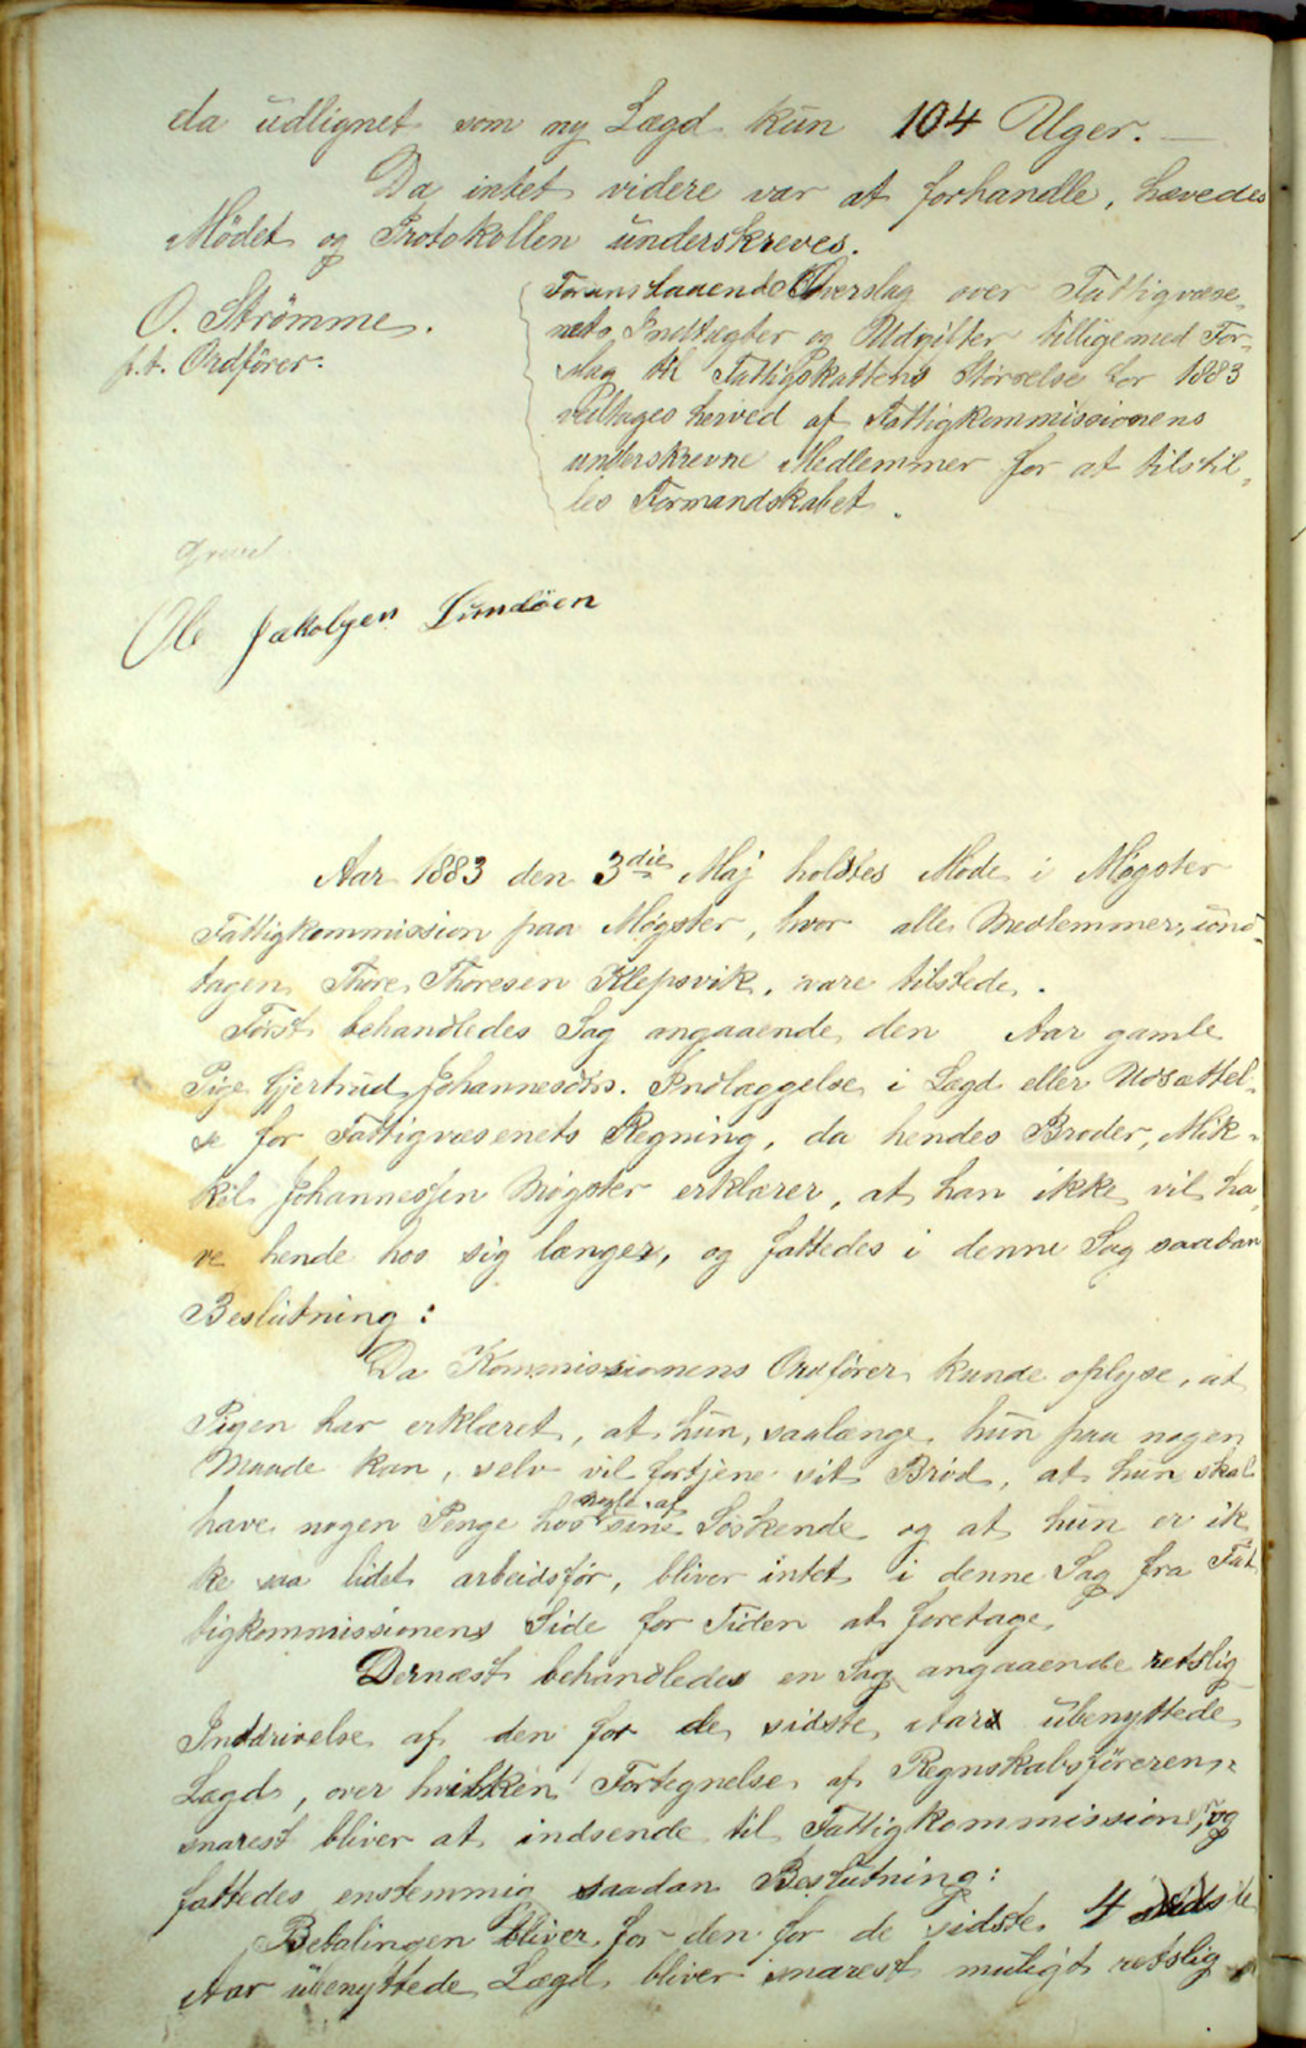 da udlignet som ny Lægd kun 104 Uger. —
Da intet videre var at forhandle, hævedes
Mödet og Protokollen underskreves.
O. Strömme.
p.t. Ordförer.
Foranstaaende Overslag over Fattigvæse-
nets Indtægter og Udgifter tilligemed For-
slag til Fattigskattens Störrelse for 1883
vedtages herved af Fattigkommissionens
underskrevne Medlemmer for at tilstil-
les Formandskabet.
Ole Jakobsen Sundöen
Aar 1883 den 3die Maj holdtes Møde i Møgster
Fattigkommission paa Møgster, hvor alle Medlemmer, und-
tagen Thore Thoresen Klepsvik, vare tilstede.
Først behandledes Sag angaaende den Aar gamle
Pige Gjertrud Johannesdtrs. Indlæggelse i Lægd eller Udsættel-
se for Fattigvæsenets Regning, da hendes Broder, Mik-
kil Johannessen Møgster erklærer, at han ikke vil ha-
ve hende hos sig længer, og fattedes i denne Sag saadan
Beslutning:
Da Kommissionens Ordfører kunde oplyse, at
Pigen har erklæret, at hun, saalænge hun paa nogen
Maade kan, selv vil fortjene sit Brød, at hun skal
have nogen Penge hos nogle af sine Søskende og at hun er ik-
ke saa lidet arbeidsfør, bliver intet i denne Sag fra Fat-
tigkommissionens Side for Tiden at foretage.
Dernæst behandledes en Sag angaaende retslig
Inddrivelse af den for de sidste Aar ubenyttede
Lægd, over hvilken Fortegnelse af Regnskabsføreren
snarest bliver at indsende til Fattigkommissionen, og
fattedes enstemmig saadan Beslutning:
Betalingen bliver for den for de sidste 4 sidste
Aar ubenyttede Lægd bliver snarest muligt retslig